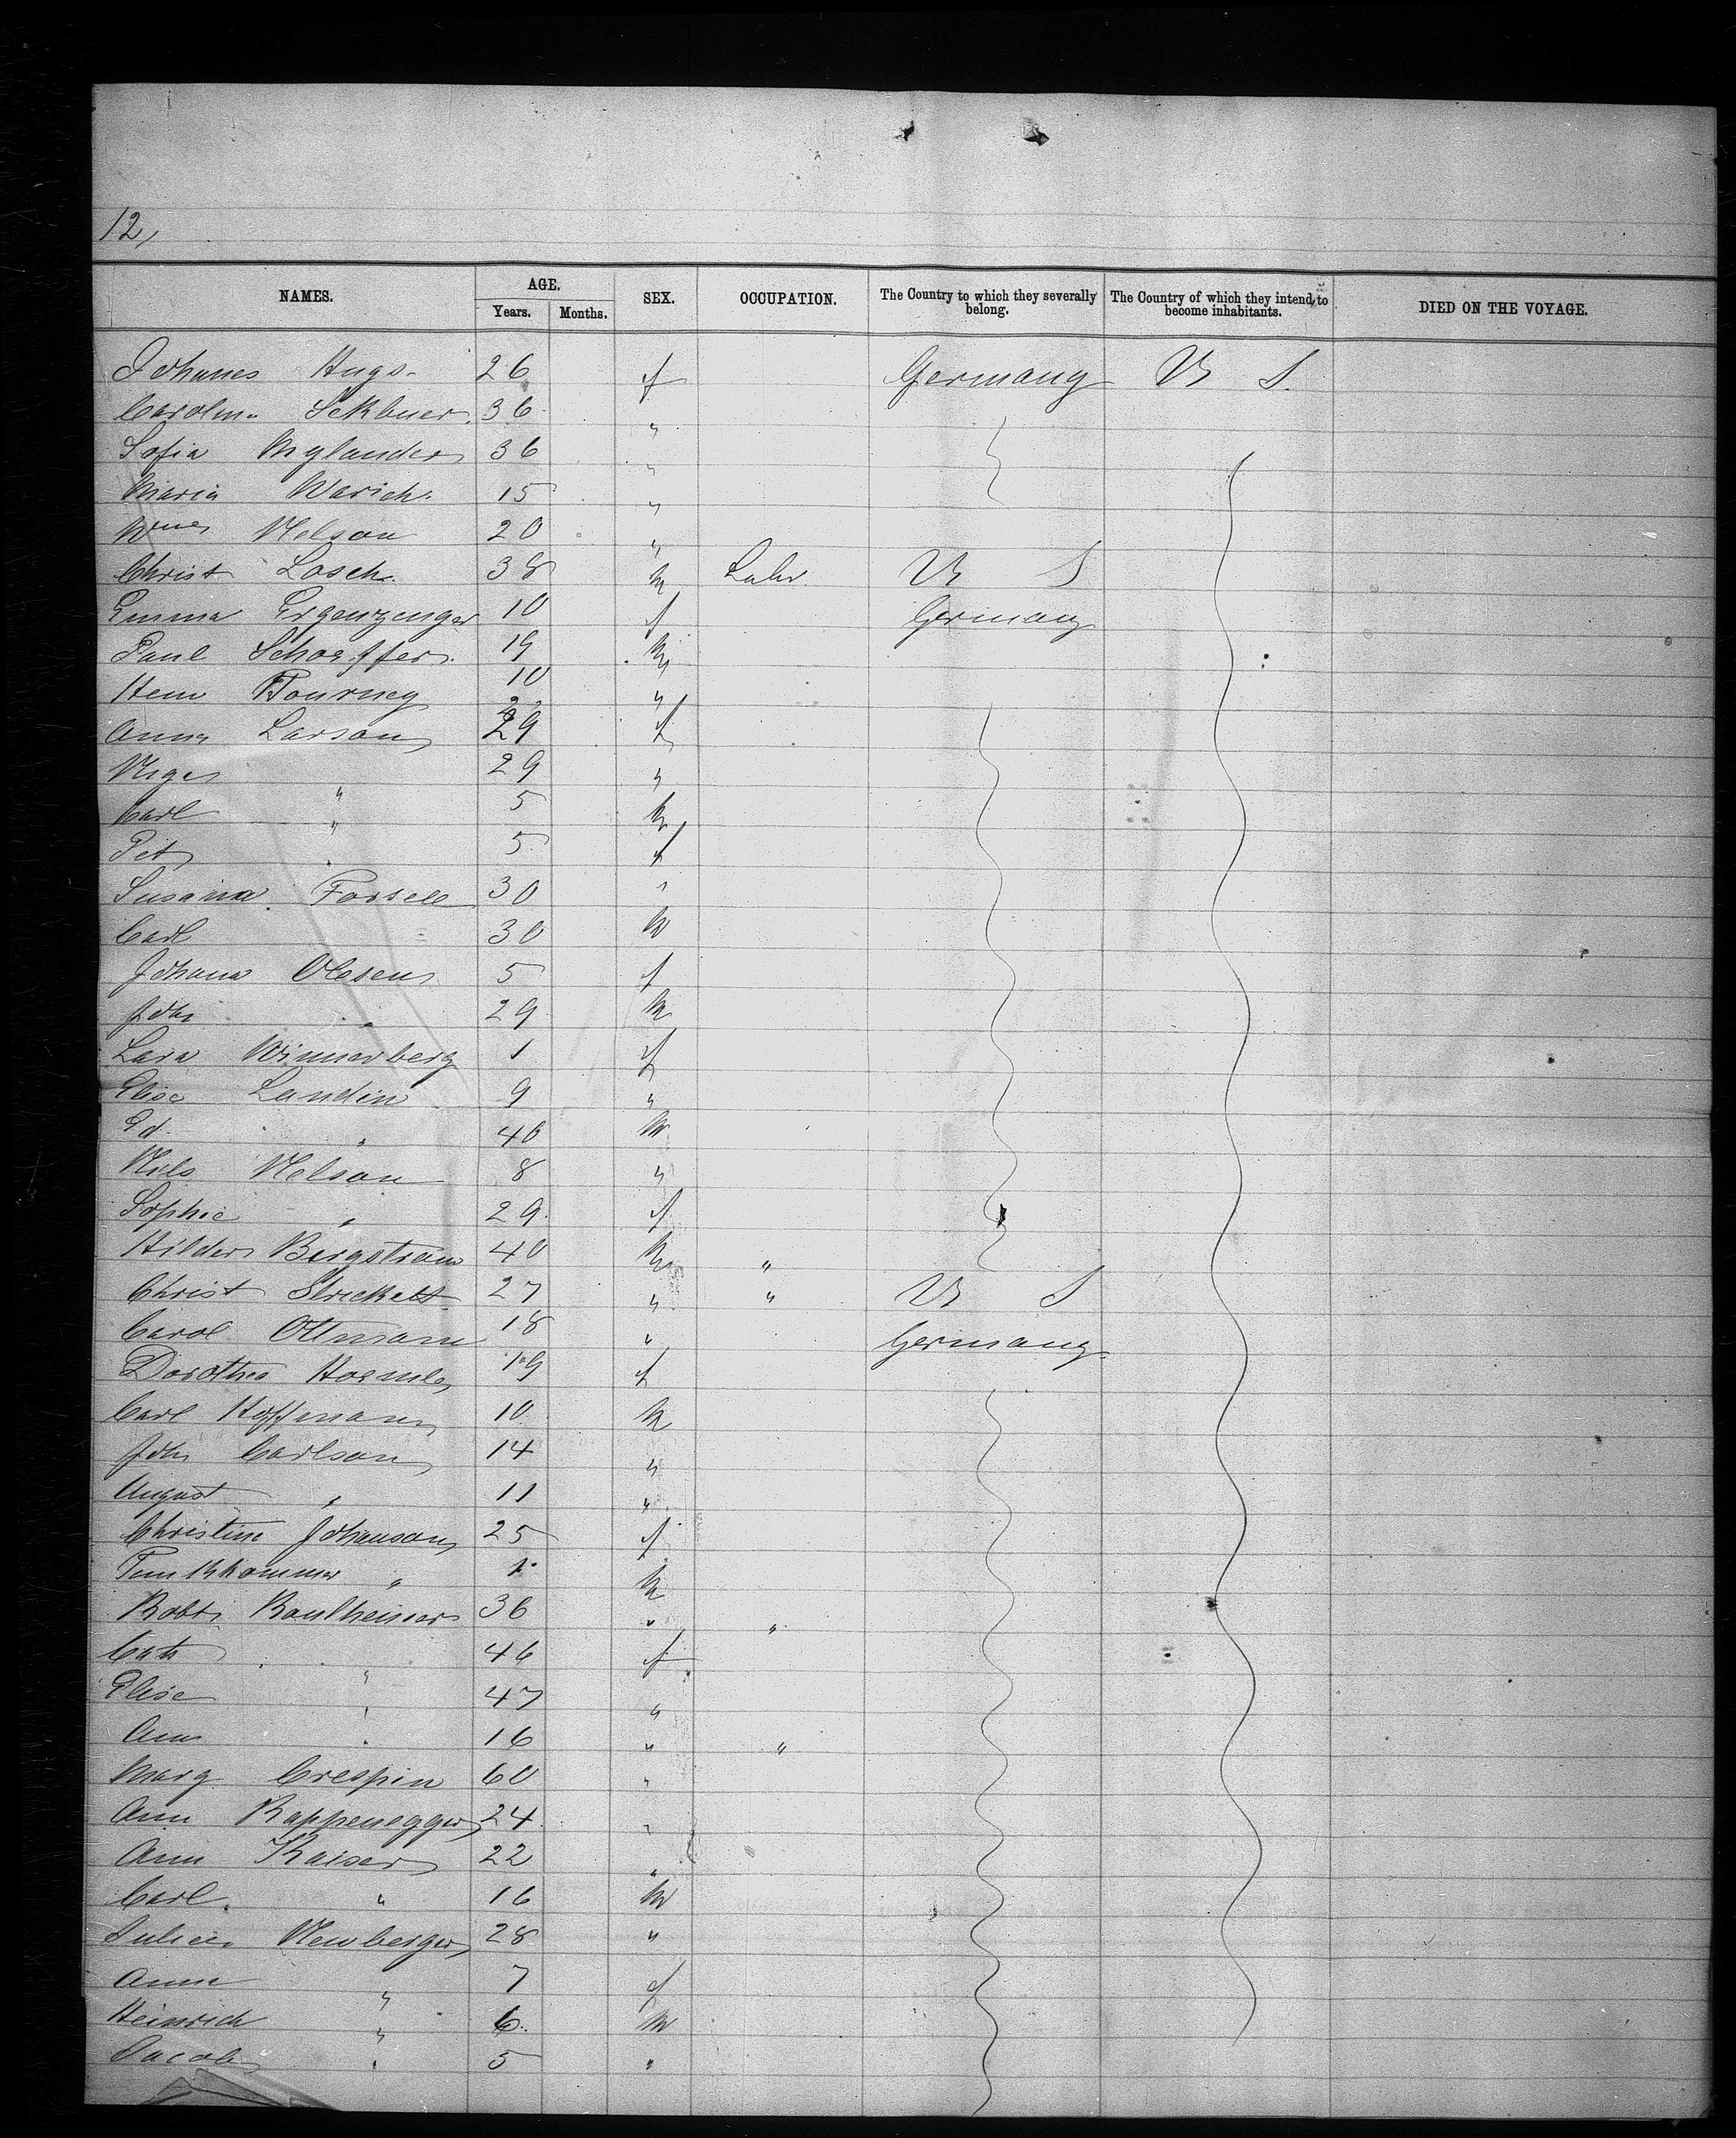 12,
NAMES. AGE. SEX. OCCUPATION. The Country to which they severally belong. The Country of which they intend to become inhabitants. DIED ON THE VOYAGE.
Years. Months.
Johanes Hugo. 26 f Germany U S.
36 "
Sofia Mylander 36 "
Maria Warich. 15 "
Nelson 20 "
Christ Losch. 38 M Labr U S
Emma Ergenzenger 10 f Germany
Paul Schaeffer. 19 M
Henr Tourney 10 "
Anna Larson 29 f
29 "
Carl " 5 M
Pet " 5 f
Susana Forsell 30 "
Carl 30 M
Johana Olesen 5 f
Joh " 29 M
Lara Winnerberg 1 f
Elise Landin 9 "
Ed. " 40 M
Nils Nelson 8 "
Sophie " 29. f
Hilder Bergstrom 40 M "
Christ Strickett 27 " " U S
Carol Ottmann 18 " Germany
Dorothea 19 f
Carl Hoffmann 10 M
Joh Carlson 14 "
August " 11 "
Christine Johanson 25 f
" 1 M
Robt Baulheimer 36 " "
Cath " 46 f
Elise " 47 "
Ann " 16 " "
Marg Crespin 60 "
Ann Rappenegger 24 "
Ann Kaiser 22 "
Carl " 16 M
Julien Newberger 28 "
Anna " 7 f
Heinrich " 6. M
Jacob " 5 "